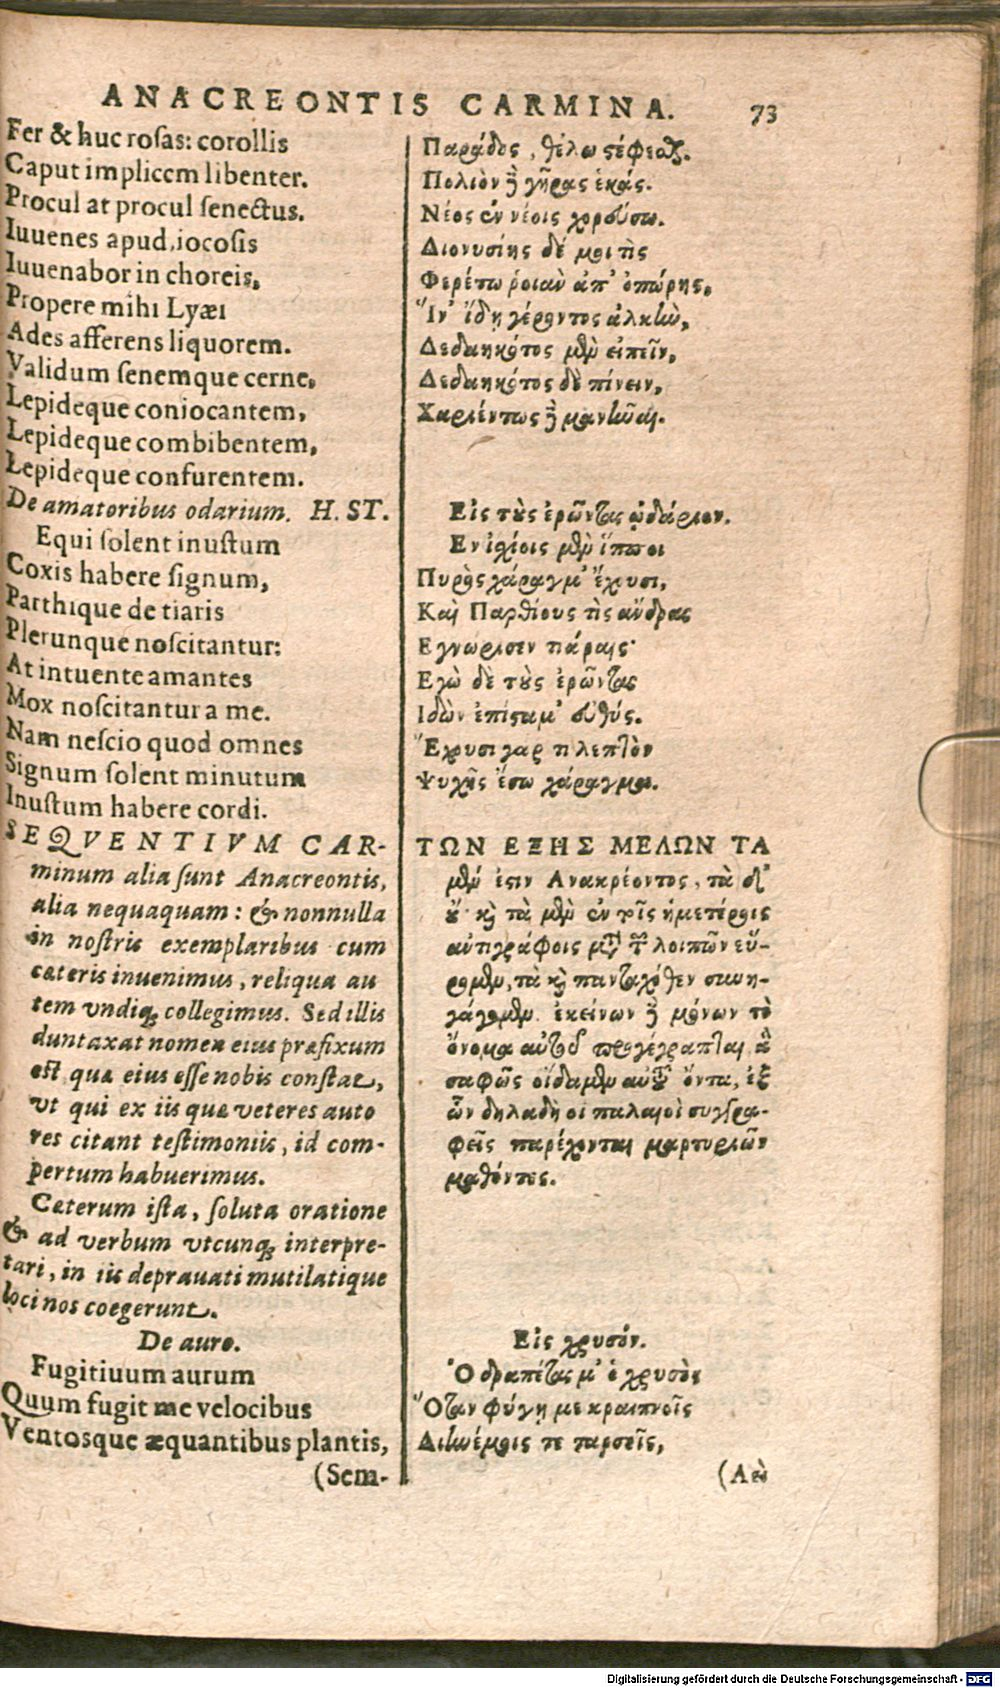 ANACREONTIS CARMINA. 73
Fer & huc rosas: corollis
Caput implicem libenter.
Procul at procul senectus.
Iuuenes apud iocosis
Iuuenabor in choreis,
Propere mihi Lyæi
Ades afferens liquorem.
Validum senemque cerne,
Lepideque coniocantem,
Lepideque combibentem,
Lepideque confurentem.
De amatoribus odarium. H. ST.
Equi solent inustum
Coxis habere signum,
Parthique de tiaris
Plerunque noscitantur:
At intuente amantes
Mox noscitantur a me.
Nam nescio quod omnes
Signum solent minutum
Inustum habere cordi.
SEQVENTIVM CAR-
minum alia sunt Anacreontis,
alia nequaquam: & nonnulla
in nostris exemplaribus cum
cæteris inuenimus, reliqua au
tem vndiq; collegimus. Sed illis
duntaxat nomen eius præfixum
est quæ eius esse nobis constat,
vt qui ex iis quæ veteres auto
res citant testimoniis, id com-
pertum habuerimus.
Cæterum ista, soluta oratione
& ad verbum vtcunq; interpre-
tari, in iis deprauati mutilatique
loci nos coegerunt.
De auro.
Fugitiuum aurum
Quum fugit me velocibus
Ventosque æquantibus plantis,
(Sem-
Παράδος, θέλω στέφεσθαι.
Πολιὸν δὲ γῆρας ἑκάς.
Νέος ἐν νέοις χορεύσω.
Διονυσίης δέ μοι τὶς
Φερέτω ῥοιαὺ ἀπ' ὀπώρης,
Ἵν' ἴδῃ γέροντος ἀλκὴν,
Δεδαηκότος μὲν εἰπεῖν,
Δεδαηκότος δὲ πίνειν,
Χαριέντως δὲ μανῆναι.
Εἰς τοὺς ἐρῶντας ᾠδάριον.
Εν ἰσχίοις μὲν ἵπποι
Πυρὸς χάραγμ' ἔχουσι,
Καὶ Παρθίους τὶς ἄνδρας
Εγνώρισεν τιάραις·
Εγὼ δὲ τοὺς ἐρῶντας
Ιδὼν ἐπίσταμ' εὐθύς.
Ἔχουσι γάρ τι λεπτὸν
Ψυχῆς ἔσω χάραγμα.
ΤΩΝ ΕΞΗΣ ΜΕΛΩΝ ΤΑ
μέν ἐστιν Ανακρέοντος, τὰ δ'
οὔ· καὶ τὰ μὲν ἐν τοῖς ἡμετέροις
αὐτιγράφοις μετὰ τῶν λοιπῶν εὕ-
ρομεν, τὰ καὶ πανταχόθεν συνη-
γάγομεν. ἐκείνων δὲ μόνων τὸ
ὄνομα αὐτοῦ προγέγραπται ἃ
σαφῶς οἴδαμεν αὐτοῦ ὄντα, ἐξ
ὧν δηλαδὴ οἱ παλαιοὶ συγγρα-
φεῖς παρέχονται μαρτυριῶν
μαθόντες.
Εἰς χρυσόν.
Ὁ δραπέτας μ' ὁ χρυσὸς
Ὅταν φύγῃ με κραιπνοῖς
Διηνέμοις τε ταρσοῖς,
(Αεὶ
Digitalisierung gefördert durch die Deutsche Forschungsgemeinschaft - DFG